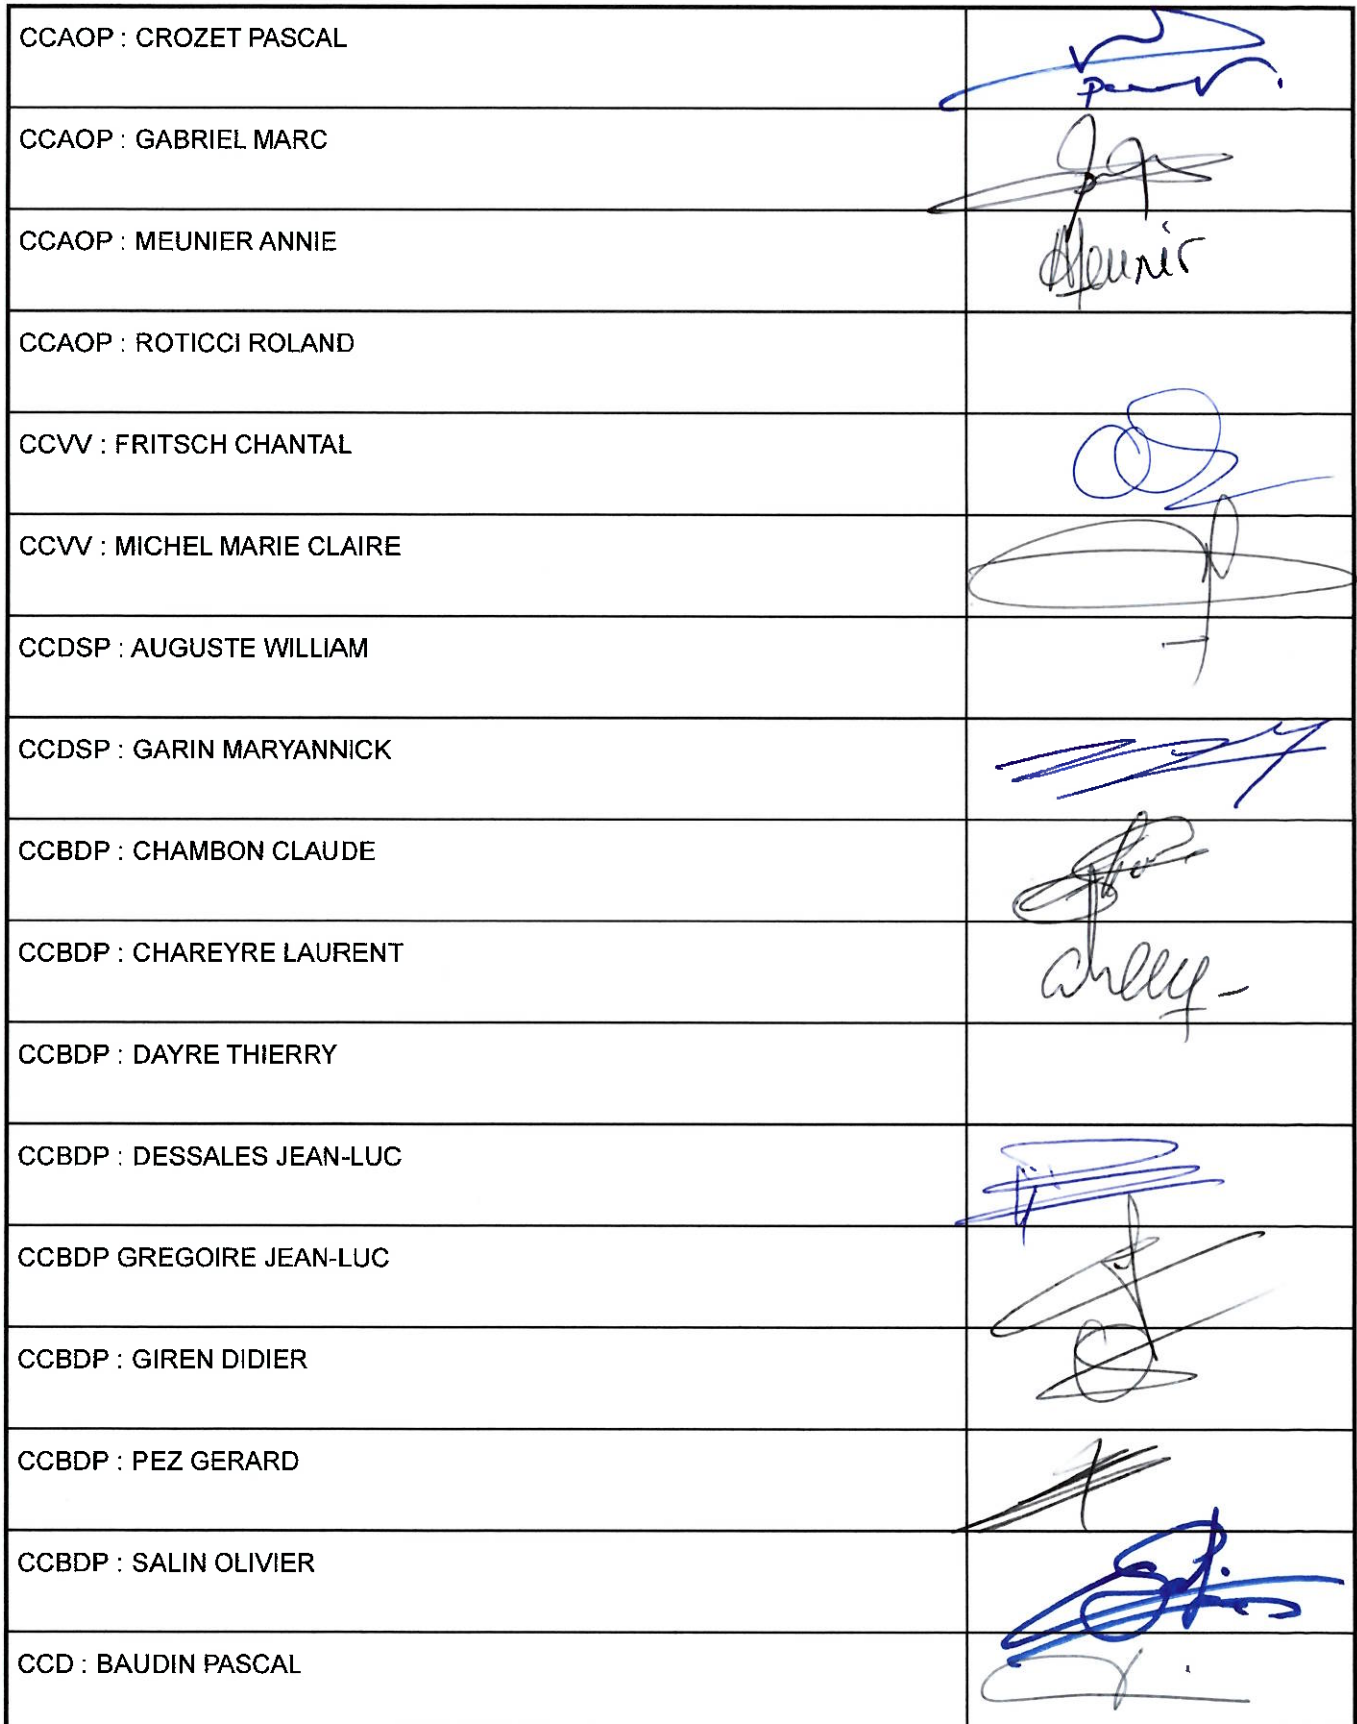 CCAOP : CROZET PASCAL
CCAOP : GABRIEL MARC
CCAOP : MEUNIER ANNIE
Meunier
CCAOP : ROTICCI ROLAND
CCVV : FRITSCH CHANTAL
CCVV : MICHEL MARIE CLAIRE
CCDSP : AUGUSTE WILLIAM
CCDSP : GARIN MARYANNICK
CCBDP : CHAMBON CLAUDE
CCBDP : CHAREYRE LAURENT
CCBDP : DAYRE THIERRY
CCBDP : DESSALES JEAN-LUC
CCBDP GREGOIRE JEAN-LUC
CCBDP : GIREN DIDIER
CCBDP : PEZ GERARD
CCBDP : SALIN OLIVIER
CCD : BAUDIN PASCAL